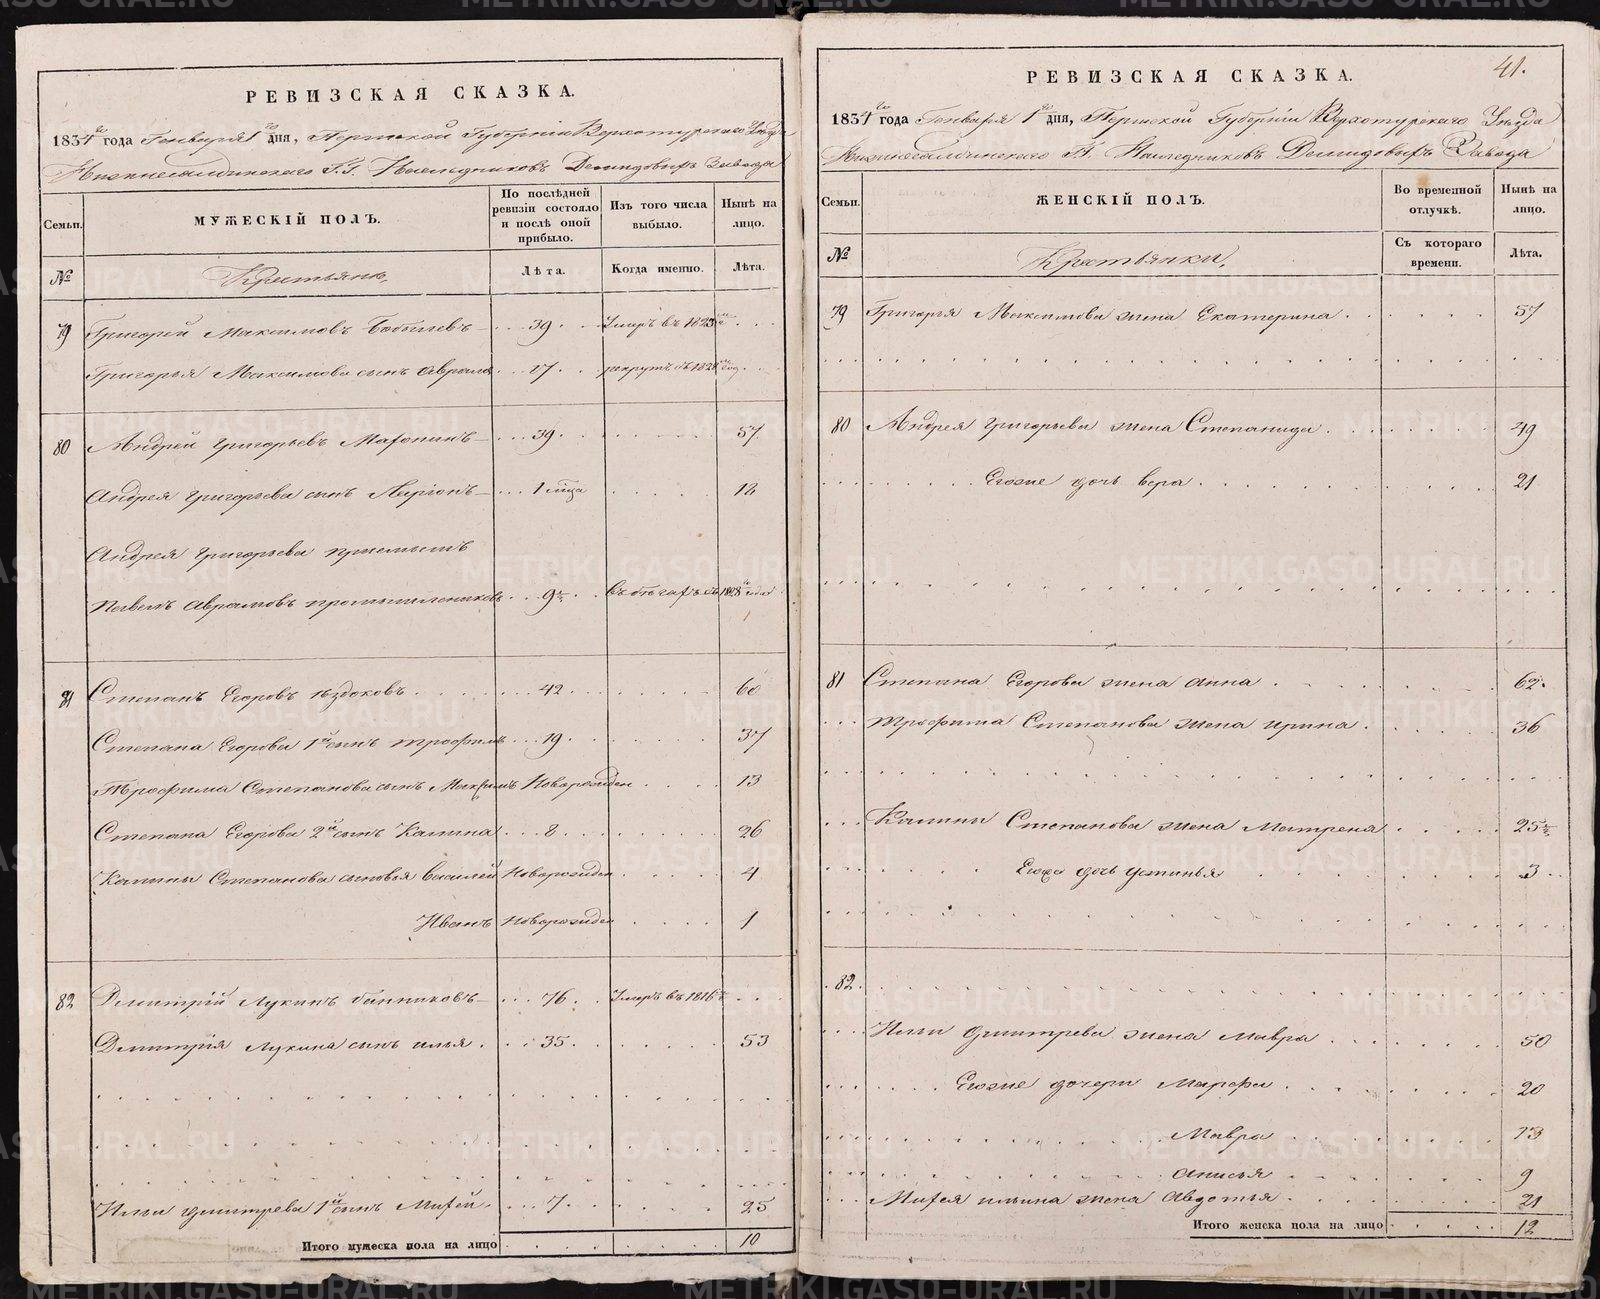 РЕВИЗСКАЯ СКАЗКА.
1834го года Генваря 1го дня, Пермской Губерніи Верхотурскаго Уезда
Нижнесалдинскаго Г.Г. Наследниковъ Демидовыхъ Завода
Семьи.
МУЖЕСКІЙ ПОЛЪ.
По послѣдней ревизіи состояло и послѣ оной прибыло.
Изъ того числа выбыло.
Нынѣ на лицо.
№
Крестьяне,
Лѣта.
Когда именно.
Лѣта.
79 Григорей Максимовъ 39 Умеръ въ 1823
Григорья Максимова сынъ 17 рекрутъ въ год
80 Андрей Григорьевъ 39 57
Андрея Григорьева сынъ Ларіонъ 1 мѣсца 18
Андрея Григорьева приемышъ
Павелъ Аврамовъ 9 1/2 Въ бѣгахъ съ 1828 года
81 Степанъ Егоровъ ѣздоковъ 42 60
Степана Егорова 1й сынъ трофимъ 19 37
Трофима Степанова сынъ Максимъ Новорожден 13
Степана Егорова 2й сынъ Калина 8 26
Калины Степанова сыновья василей Новорожден 4
Иванъ Новорожден 1
82 Дмитрій Лукинъ банниковъ 76 Умеръ въ 1816
Дмитрія Лукина сынъ илья 35 53
Ильи дмитрева 1й сынъ Михей 7 25
Итого мужеска пола на лицо 10
41.
РЕВИЗСКАЯ СКАЗКА.
1834го года Генваря 1го дня, Пермской Губерніи Верхотурскаго Уезда
Нижнесалдинскаго Г.Г. Наследниковъ Демидовыхъ Завода
Семьи.
ЖЕНСКІЙ ПОЛЪ.
Во временной отлучкѣ.
Нынѣ на лицо.
№
Крестьянки,
Съ котораго времени.
Лѣта.
79 Григорья Максимова жена Екатерина 57
80 Андрея Григорьева жена Степанида 49
Егоже дочь вера 21
81 Степана Егорова жена анна 62
трофима Степанова жена ирина 36
Калины Степанова жена Матрена 25 1/2
Егоже дочь устинья 3
82
Ильи дмитрева жена Мавра 50
Егоже дочери Марфа 20
Мавра 13
анисья 9
Михея ильина жена авдотья 21
Итого женска пола на лицо 12
METRIKI.GASO-URAL.RU